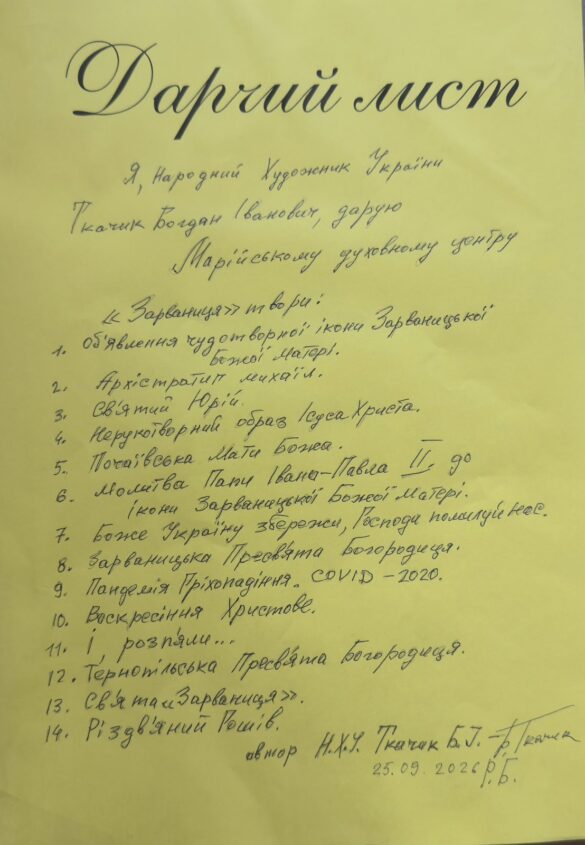 Дарчий лист
Я, Народний Художник України
Ткачик Богдан Іванович, дарую
Марійському духовному центру
«Зарваниця» твори:
1. Об'явлення чудотворної ікони Зарваницької
Божої Матері.
2. Архістратиг Михаїл.
3. Св'ятий Юрій.
4. Нерукотворний образ Ісуса Христа.
5. Почаївська Мати Божа.
6. Молитва Папи Івана-Павла II до
ікони Зарваницької Божої Матері.
7. Боже Україну збережи, Господи помилуй нас.
8. Зарваницька Пресв'ята Богородиця.
9. Пандемія Гріхопадіння. COVID – 2020.
10. Воскресіння Христове.
11. І, розп'яли...
12. Тернопільська Пресв'ята Богородиця.
13. Св'ята «Зарваниця».
14. Різдв'яний
автор Н.Х.У. Ткачик Б.І. Ткачик
25.09.2026 Р.Б.